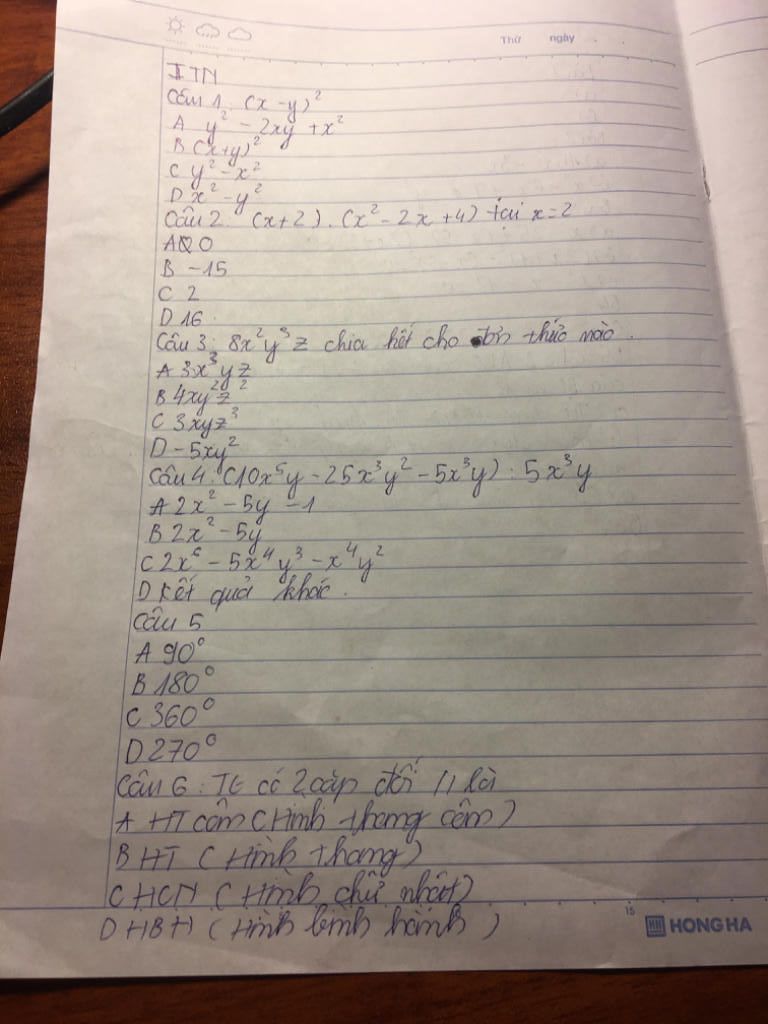 Thứ ngày
I TN
Câu 1: (x - y)²
A y² - 2xy + x²
B (x+y)²
C y² - x²
D x² - y²
Câu 2. (x+2).(x² - 2x +4) tại x=2
A 0
B -15
C 2
D 16.
Câu 3: 8x²y³z chia hết cho đơn thức nào.
A 3x³yz
B 4xy²z²
C 3xyz³
D -5xy²
Câu 4: (10x⁵y - 25x³y² - 5x³y) : 5x³y
A 2x² - 5y - 1
B 2x² - 5y
C 2x⁶ - 5x⁴y³ - x⁴y²
D Kết quả khác.
Câu 5
A 90°
B 180°
C 360°
D 270°
Câu 6: TG có 2 cặp đối // là
A HT cân (Hình thang cân)
B HT (Hình thang)
C HCN (Hình chữ nhật)
D HBH (Hình bình hành)
15 HH HONG HA